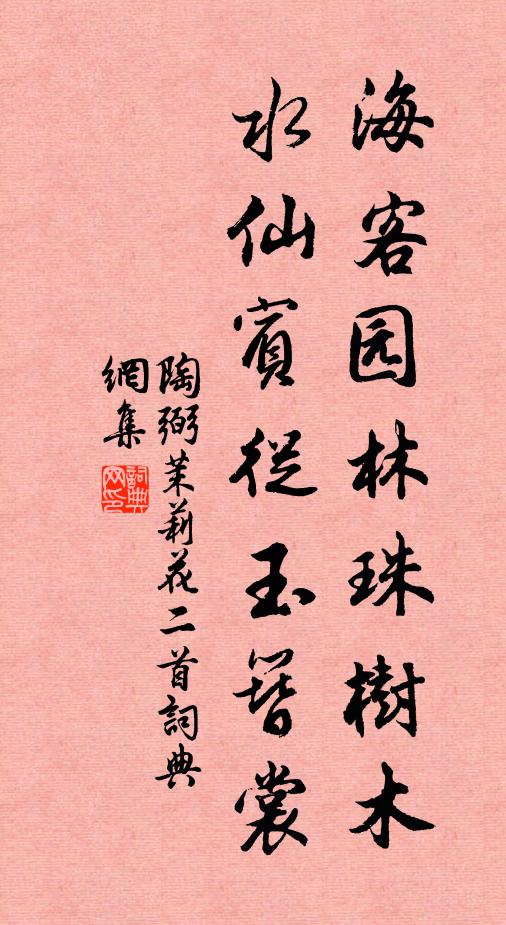 海客园林珠樹木
水仙賓從玉簪裳
陶弼茉莉花二首詞典
網集
詞典網印